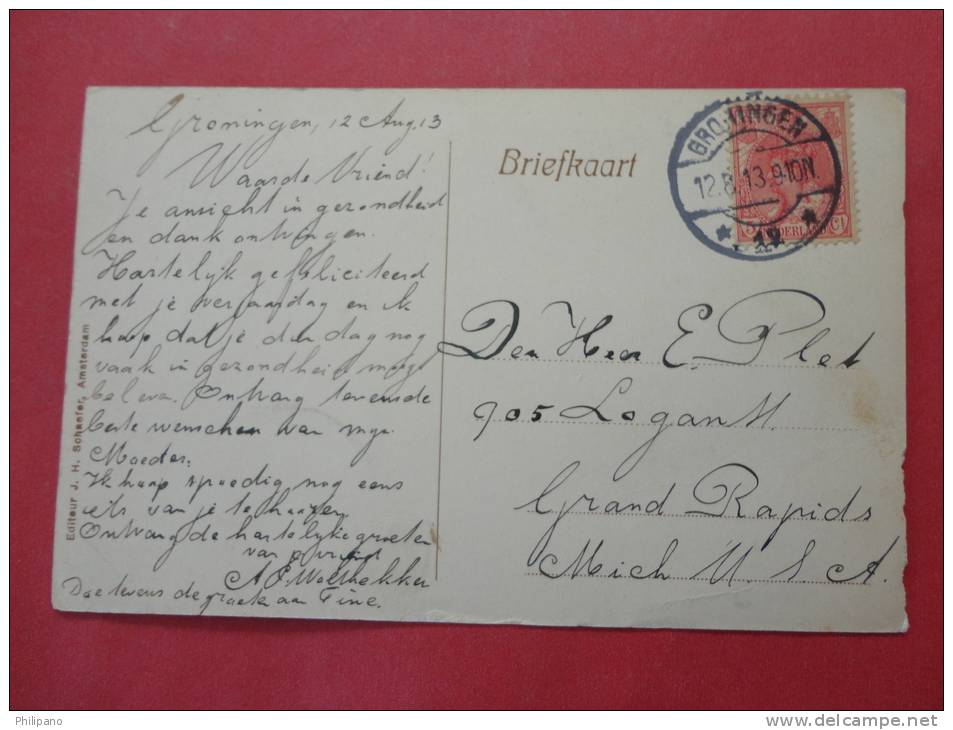 Groningen, 12 Aug. 13
Waarde Vriend!
Je ansicht in gezondheid
en dank ontvangen.
Hartelijk gefeliciteerd
met je verjaardag en ik
hoop dat je den dag nog
vaak in gezondheid moge
beleven. Ontvang tevens de
beste wenschen van mijn
Moeder.
Ik hoop spoedig nog eens
iets van je te hooren
Ontvang de hartelijke groeten
van je vriend
Doe tevens de groeten aan Tine.
Editeur J. H. Schaefer, Amsterdam
Briefkaart
GRONINGEN
12.8.13.9-10N.
* 12 *
5 NEDERLAND Ct
Den Heer E. Plet
905 Logan St.
Grand Rapids
Mich U. S. A.
Philipano
www.delcampe.net